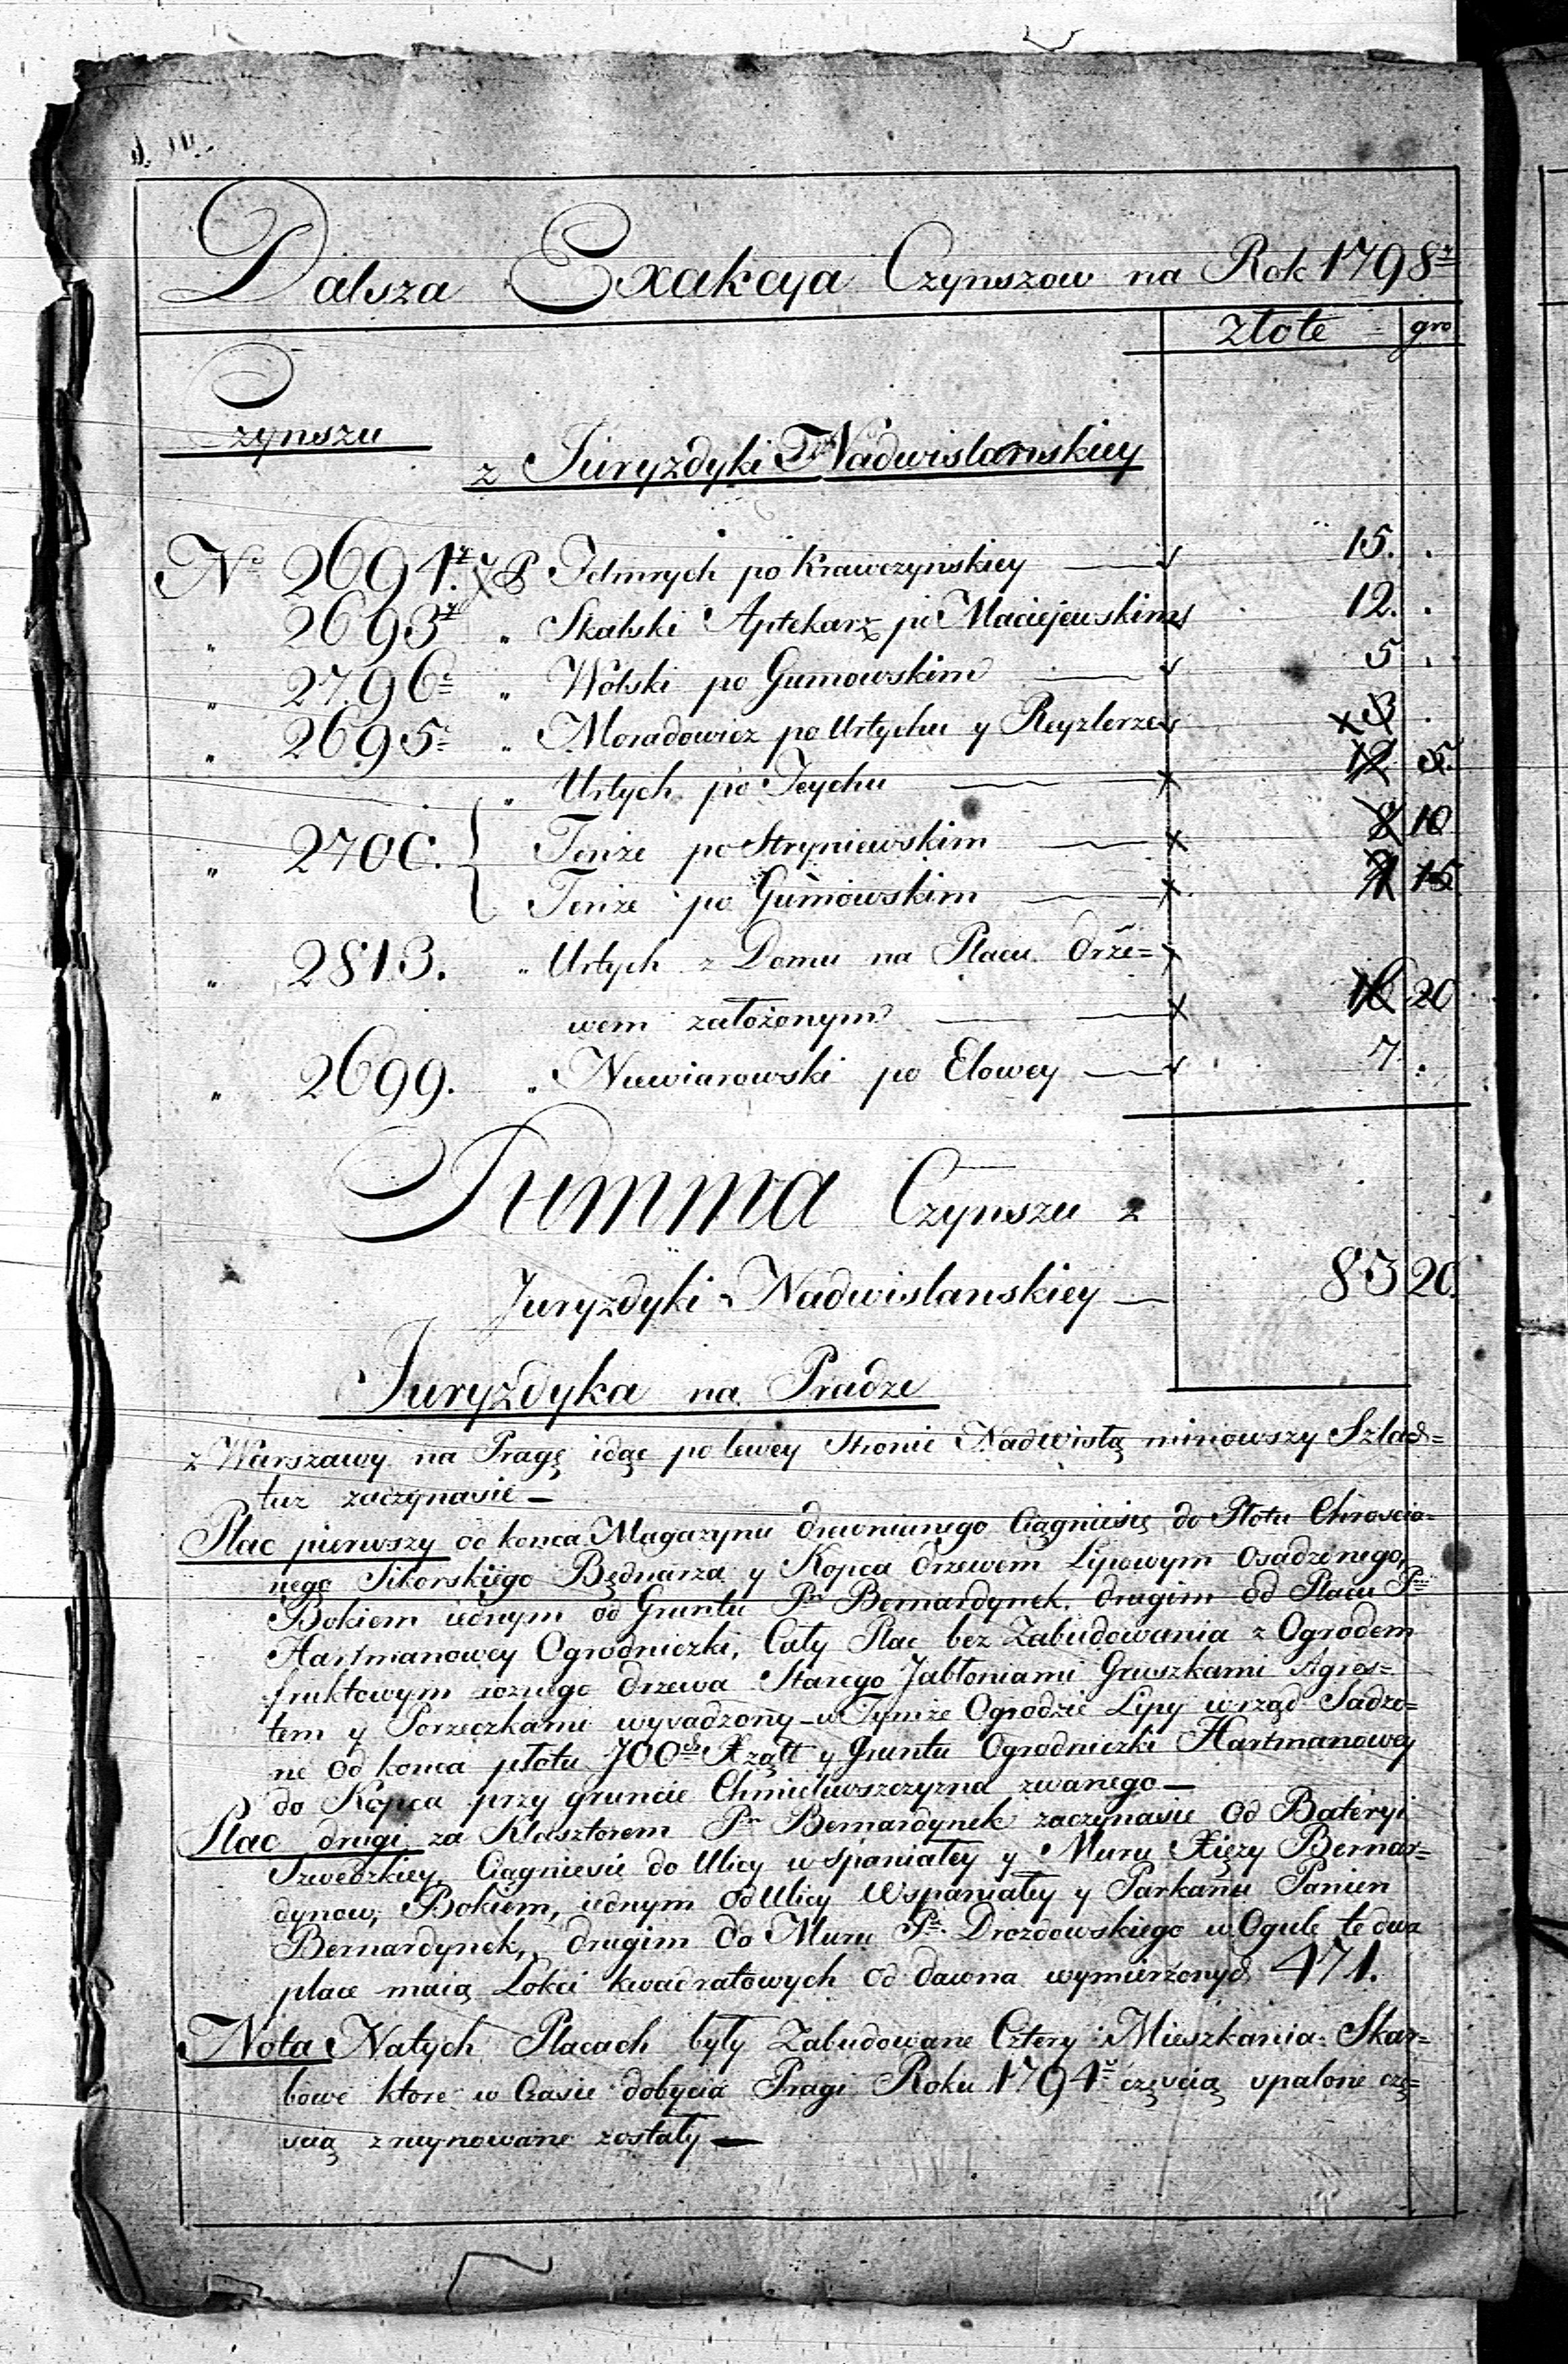 Dalsza Exakcya Czynszow na Rok 1798
złote gro
Czynszu
z Juryzdyki Nadwislanskiey
No 2694 JP po Krawczynskiey 15. .
" 2693 " Skalski Aptekarz po Maciejewskim 12. .
" 2796 " Wolski po Gumowskim 5 .
" 2695 " Moradowicz po Urtychu y Reyzlerze 3 .
" Urtych po Teychu 12 5.
" 2700. { Tenże po Stryniewskim 10
Tenże po Gumowskim 15
" 2813. " Urtych z Domu na Placu drze=
wem założonym 16 20
" 2699. " Niewiarowski po Elowey 7 .
Summa Czynszu z
Juryzdyki Nadwislanskiey 83 20.
Juryzdyka na Pradze
z Warszawy na Pragę idąc po lewey stronie Nadwisłą minowszy Szlach=
tuz zaczynasie
Plac pierwszy od konca Magazynu drewnianego Ciągniesię do Płotu Chroscia=
nego Sikorskiego Bednarza y Kopca drzewem Lipowym osadzonego,
Bokiem iednym od Gruntu Pn Bernardynek, drugim od Placu Pni
Hartmanowey Ogrodniczki, Cały Plac bez Zabudowania z Ogrodem
fruktowym roznego drzewa Starego Jabłoniami Gruszkami Agres=
tem y Porzeczkami wysadzony w Tymże Ogrodzie Lipy w rząd Sadzo=
ne od konca płotu y Gruntu Ogrodniczki Hartmanowey
do Kopca przy gruncie Chmielewszczyzna zwanego
Plac drugi za Klasztorem Pn Bernardynek zaczynasie od Bateryi
Szwedzkiey, Ciągniesie do Ulicy wspaniałey y Muru Xięży Bernar=
dynow, Bokiem, iednym od Ulicy Wspaniałey y Parkanu Panien
Bernardynek, drugim do Muru Pa Drozdowskiego w Ogule te dwa
place maią Łokci kwadratowych od dawna wymierzonych 471.
Nota Natych Placach były Zabudowane Cztery Mieszkania Skar=
bowe ktore w Czasie dobycia Pragi Roku 1794 częscią spalone czę=
scią zruynowane zostały